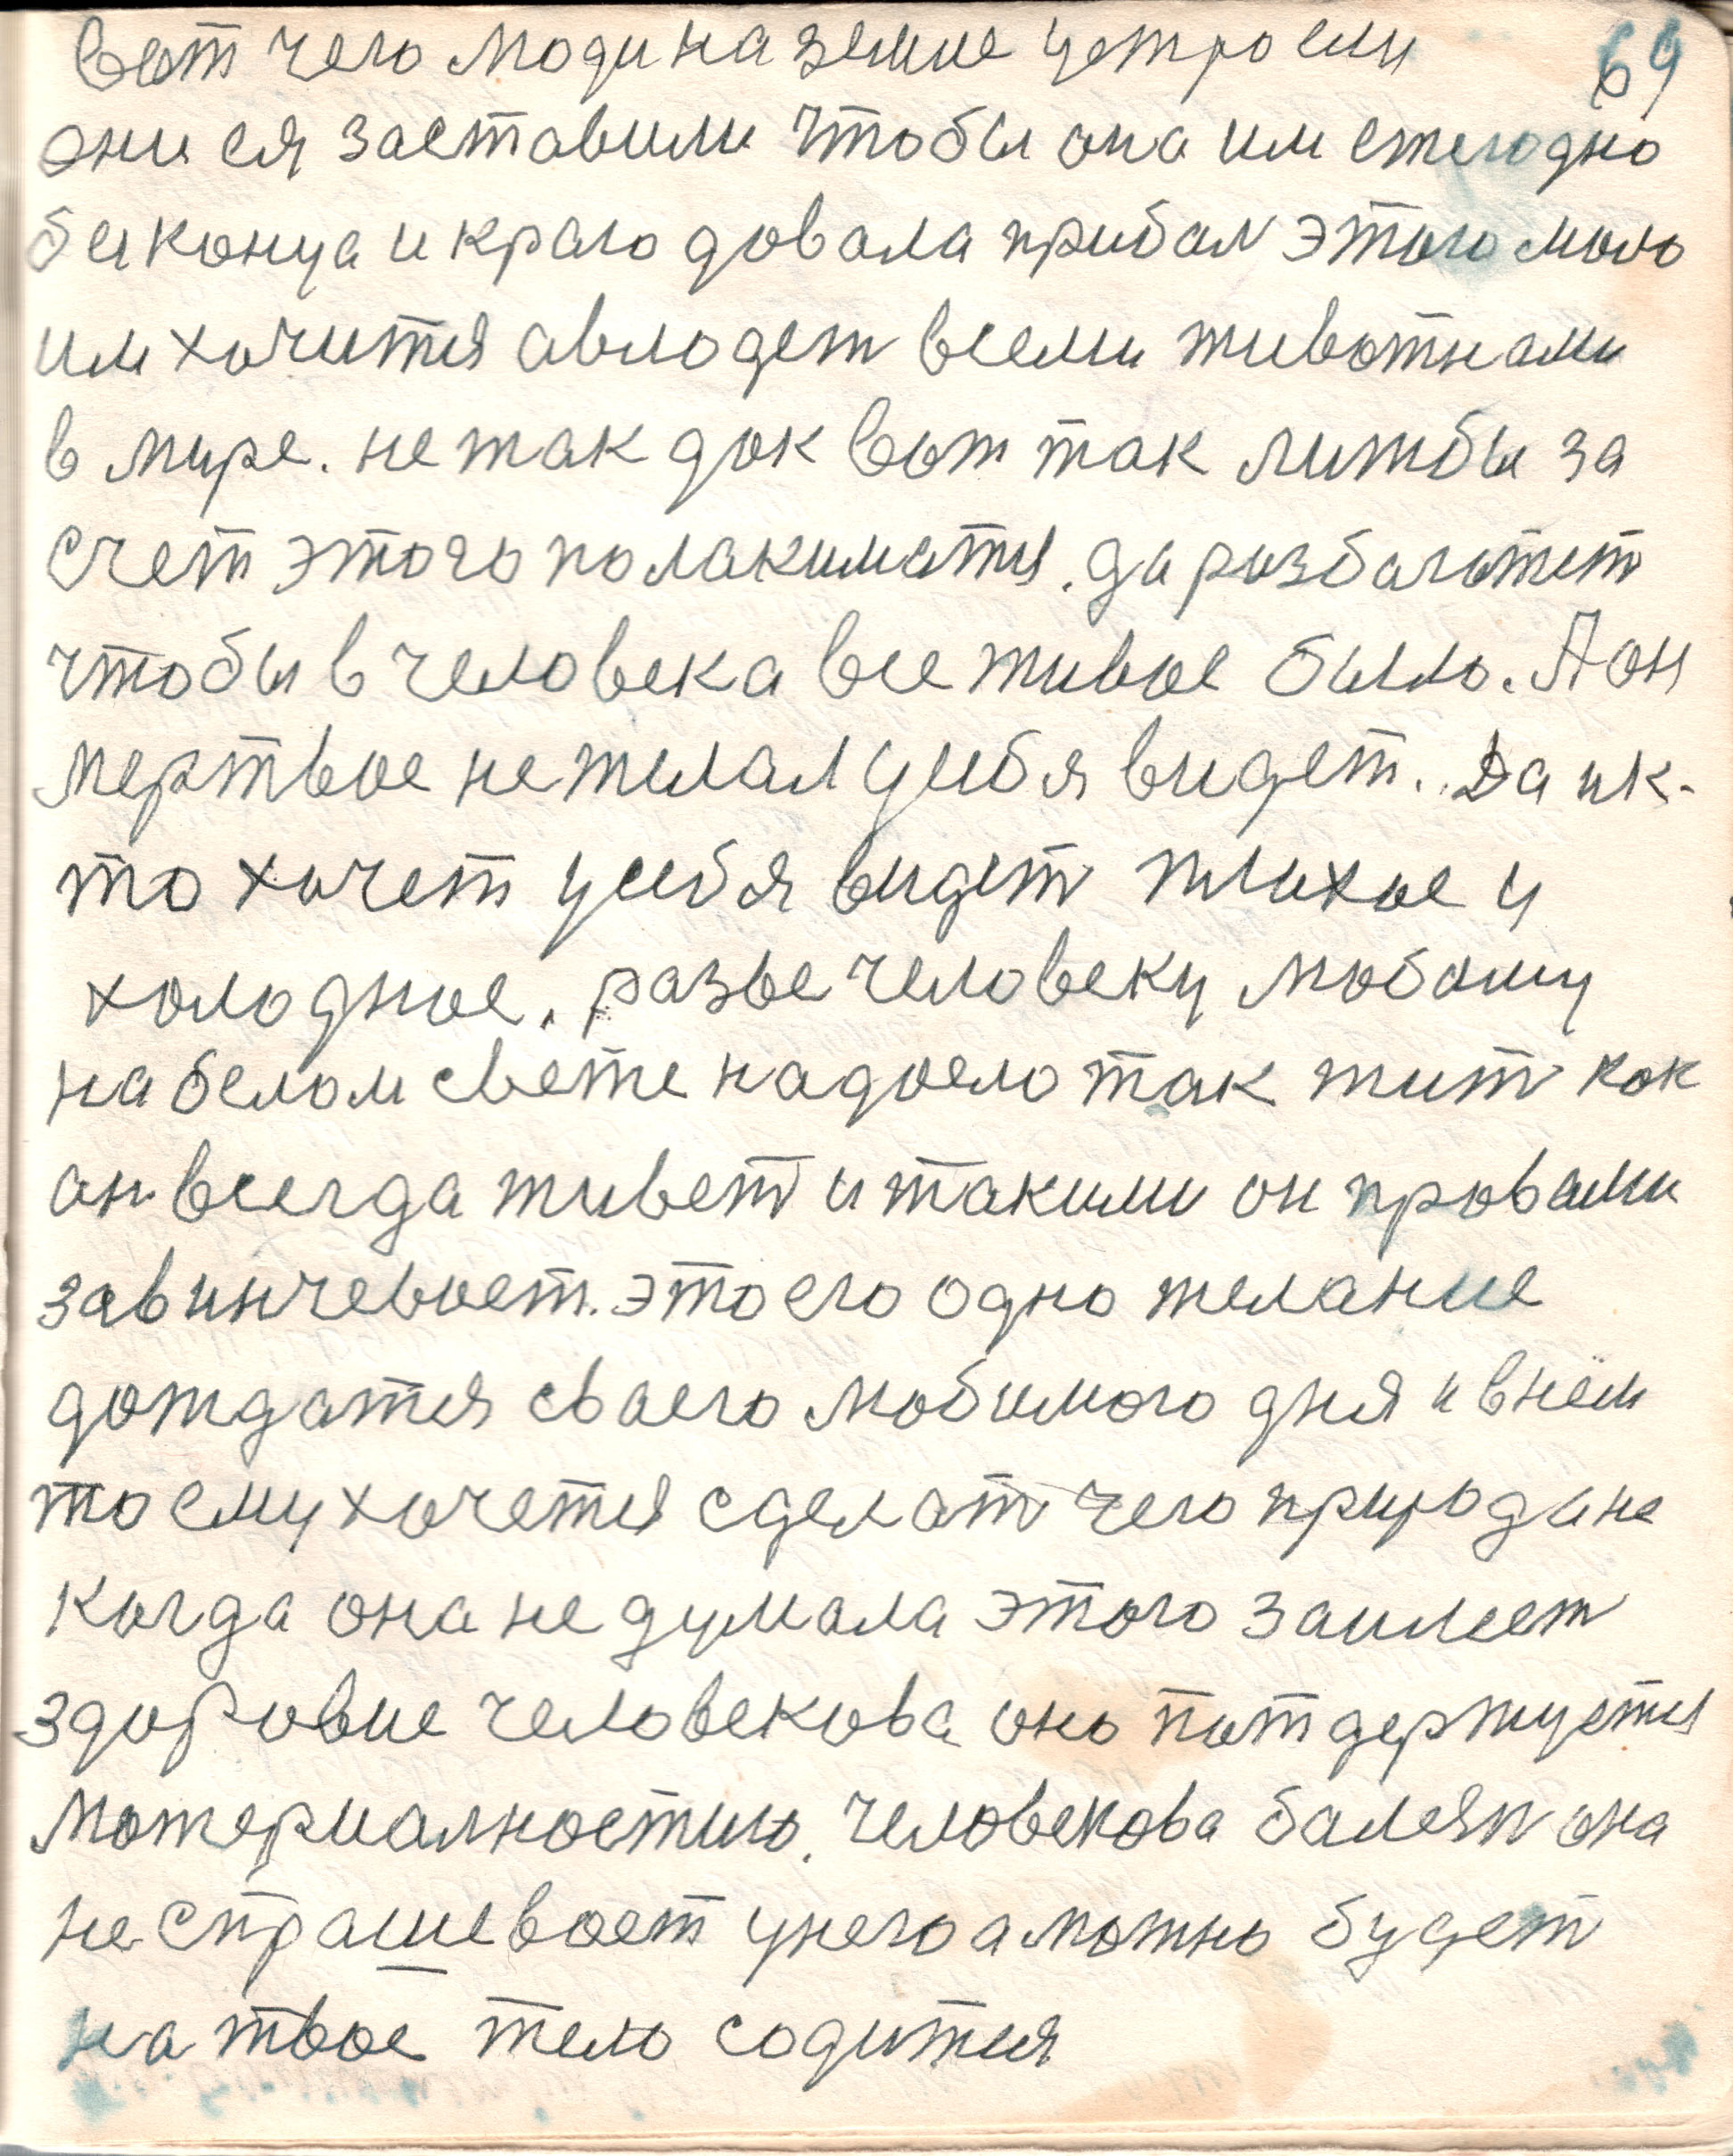 69
Вот чего люди на земле устроели
они ея заставили чтобы она им ежегодно
бе конца и краю довала прибал этого мало
им хочится авлодет всеми животнами
в мире. не так док вот так лижбы за
счет этого полакимится. да разбагатет
чтобы в человека все живое было. А он
мертвое не желал у себя видет. Да и к-
то хочет у себя видет плихое и
холодное. разве человеку любому
на белом свете надоело так жит как
он всегда живет и такими он провами
завинчевоет. это его одно желание
дождатся своего любимого дня и в нём
то ему хочется сделат чего природа не
когда она не думала этого заимеет
здоровие человекова оно потдержуется
материалностию. человекова балезн она
не спрашевоет у него а можно будет
на твое тело садится